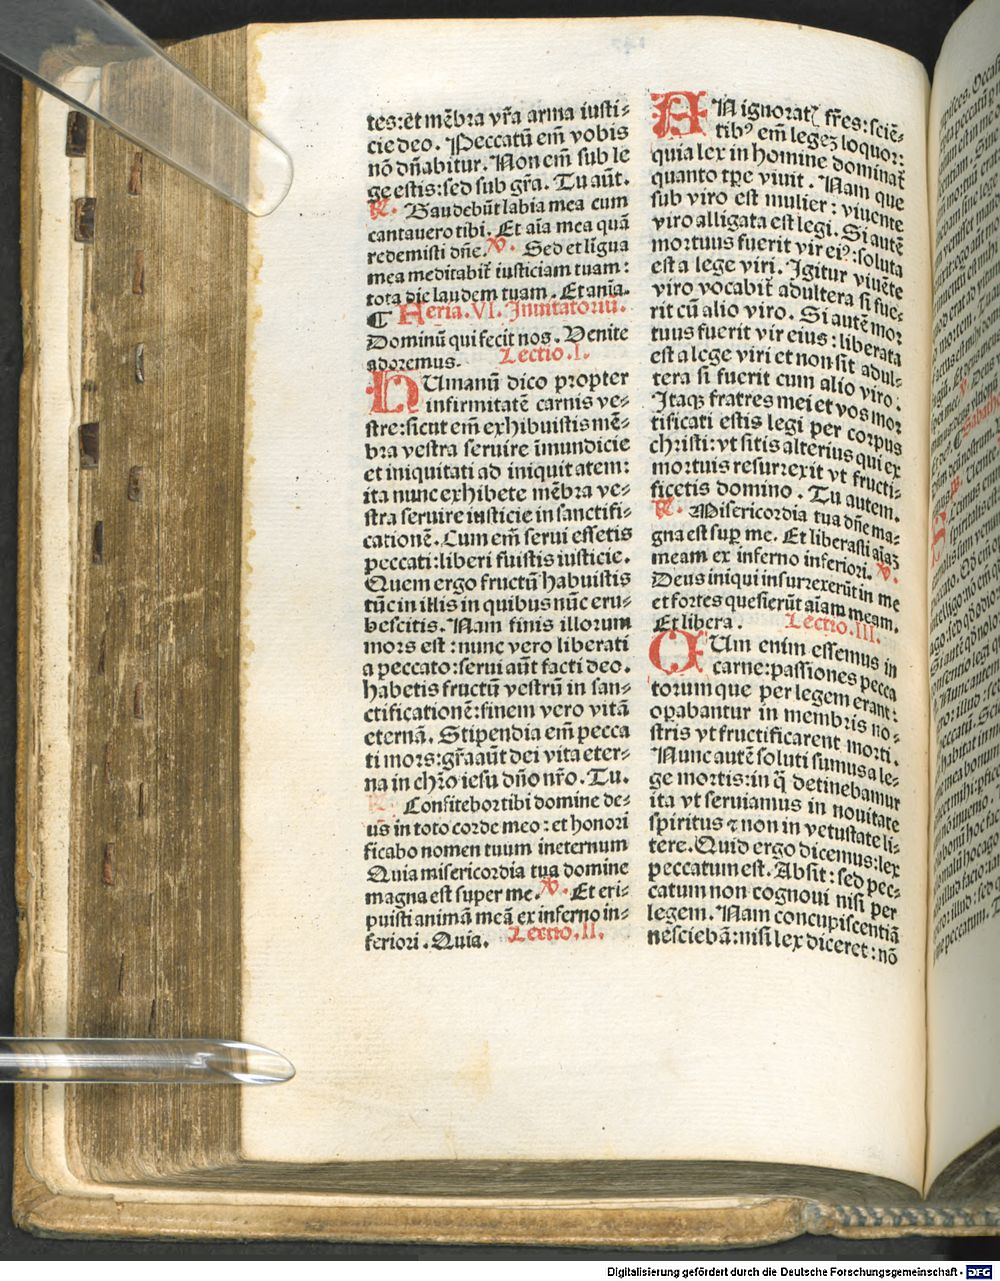 tes: et mẽbra vr̃a arma iusti-
cie deo. Peccatũ em̃ vobis
nõ dñabitur. Non em̃ sub le
ge estis: sed sub gr̃a. Tu aũt.
℟. Gaudebũt labia mea cum
cantauero tibi. Et aĩa mea quã
redemisti dñe. ℣. Sed et lĩgua
mea meditabit̃ iusticiam tuam:
tota die laudem tuam. Et anĩa.
¶ Feria. VI. Inuitatoriũ.
Dominũ qui fecit nos. Venite
adoremus. Lectio. I.
HUmanũ dico propter
infirmitatẽ carnis ve-
stre: sicut em̃ exhibuistis mẽ-
bra vestra seruire ĩmundicie
et iniquitati ad iniquitatem:
ita nunc exhibete mẽbra ve-
stra seruire iusticie in sanctifi-
cationẽ. Cum em̃ serui essetis
peccati: liberi fuistis iusticie.
Quem ergo fructũ habuistis
tũc in illis in quibus nũc eru-
bescitis. Nam finis illorum
mors est: nunc vero liberati
a peccato: serui aũt facti deo.
habetis fructũ vestrũ in san-
ctificationẽ: finem vero vitã
eternã. Stipendia em̃ pecca
ti mors: gr̃a aũt dei vita eter-
na in chr̃o iesu dño nr̃o. Tu.
℟. Confitebor tibi domine de-
us̃ in toto corde meo: et honori
ficabo nomen tuum ineternum
Quia misericordia tua domine
magna est super me. ℣. Et eri-
puisti animã meã ex inferno in-
feriori. Quia. Lectio. II.
AN ignorat⸗ fr̃es: sciẽ-
tibꝰ em̃ legeꝫ loquor:
quia lex in homine dominat̃
quanto tp̃e viuit. Nam que
sub viro est mulier: viuente
viro alligata est legi. Si autẽ
mortuus fuerit vir eiꝰ: soluta
est a lege viri. Igitur viuẽte
viro vocabit̃ adultera si fue-
rit cũ alio viro. Si autẽ mor
tuus fuerit vir eius: liberata
est a lege viri et non sit adul-
tera si fuerit cum alio viro.
Itaqꝫ fratres mei et vos mor
tificati estis legi per corpus
christi: vt sitis alterius qui ex
mortuis resurrexit vt fructi-
ficetis domino. Tu autem.
℟. Misericordia tua dñe ma-
gna est suꝑ me. Et liberasti aĩaꝫ
meam ex inferno inferiori. ℣.
Deus iniqui insurrexerũt in me
et fortes quesierũt aĩam meam.
Et libera. Lectio. III.
CUm enim essemus in
carne: passiones pecca
torum que per legem erant:
opabantur in membris no-
stris vt fructificarent morti.
Nunc autẽ soluti sumus a le-
ge mortis: in q̃ detinebamur
ita vt seruiamus in nouitate
spiritus ⁊ non in vetustate li-
tere. Quid ergo dicemus: lex
peccatum est. Absit: sed pec-
catum non cognoui nisi per
legem. Nam concupiscentiã
nesciebã: nisi lex diceret: nõ
Digitalisierung gefördert durch die Deutsche Forschungsgemeinschaft - DFG